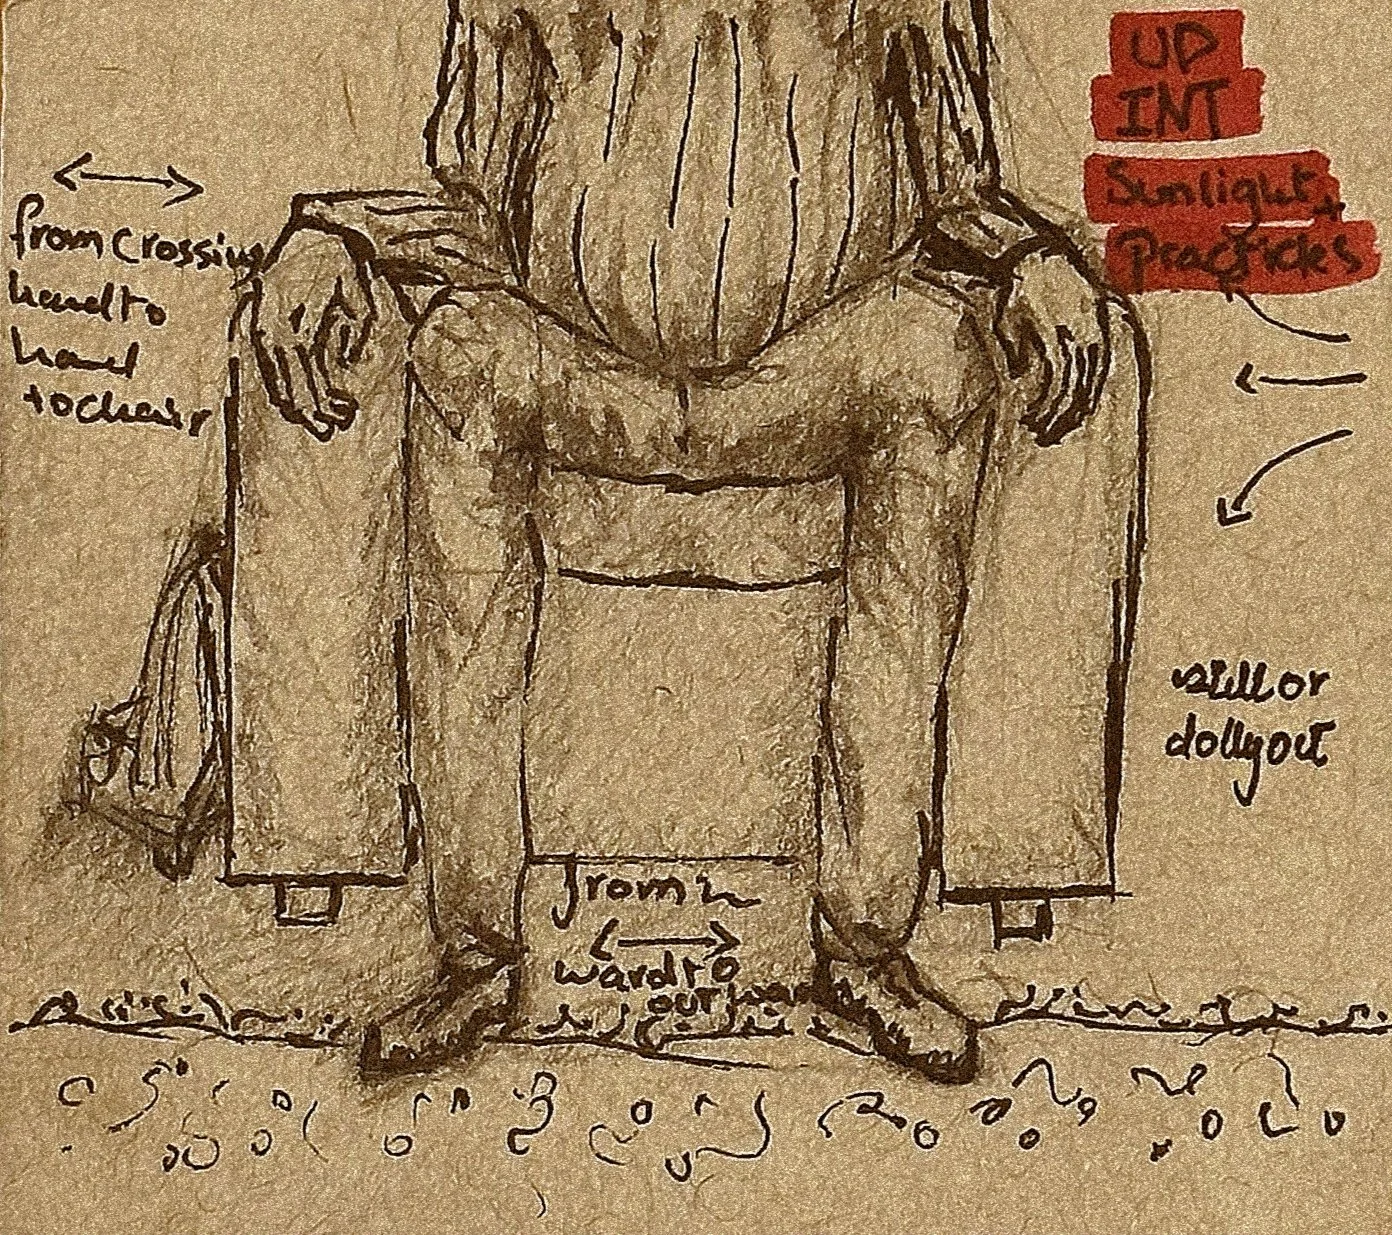 UD
INT
Sunlight +
practicles
from crossing
hand to
hand
to chair
still or
dolly out
from in
ward to
outward